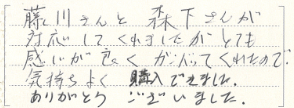 藤川さんと 森下さんが
対応してくれましたがとても
感じが良く が入ってくれたので
気持ちよく 購入できました.
ありがとう ございました.